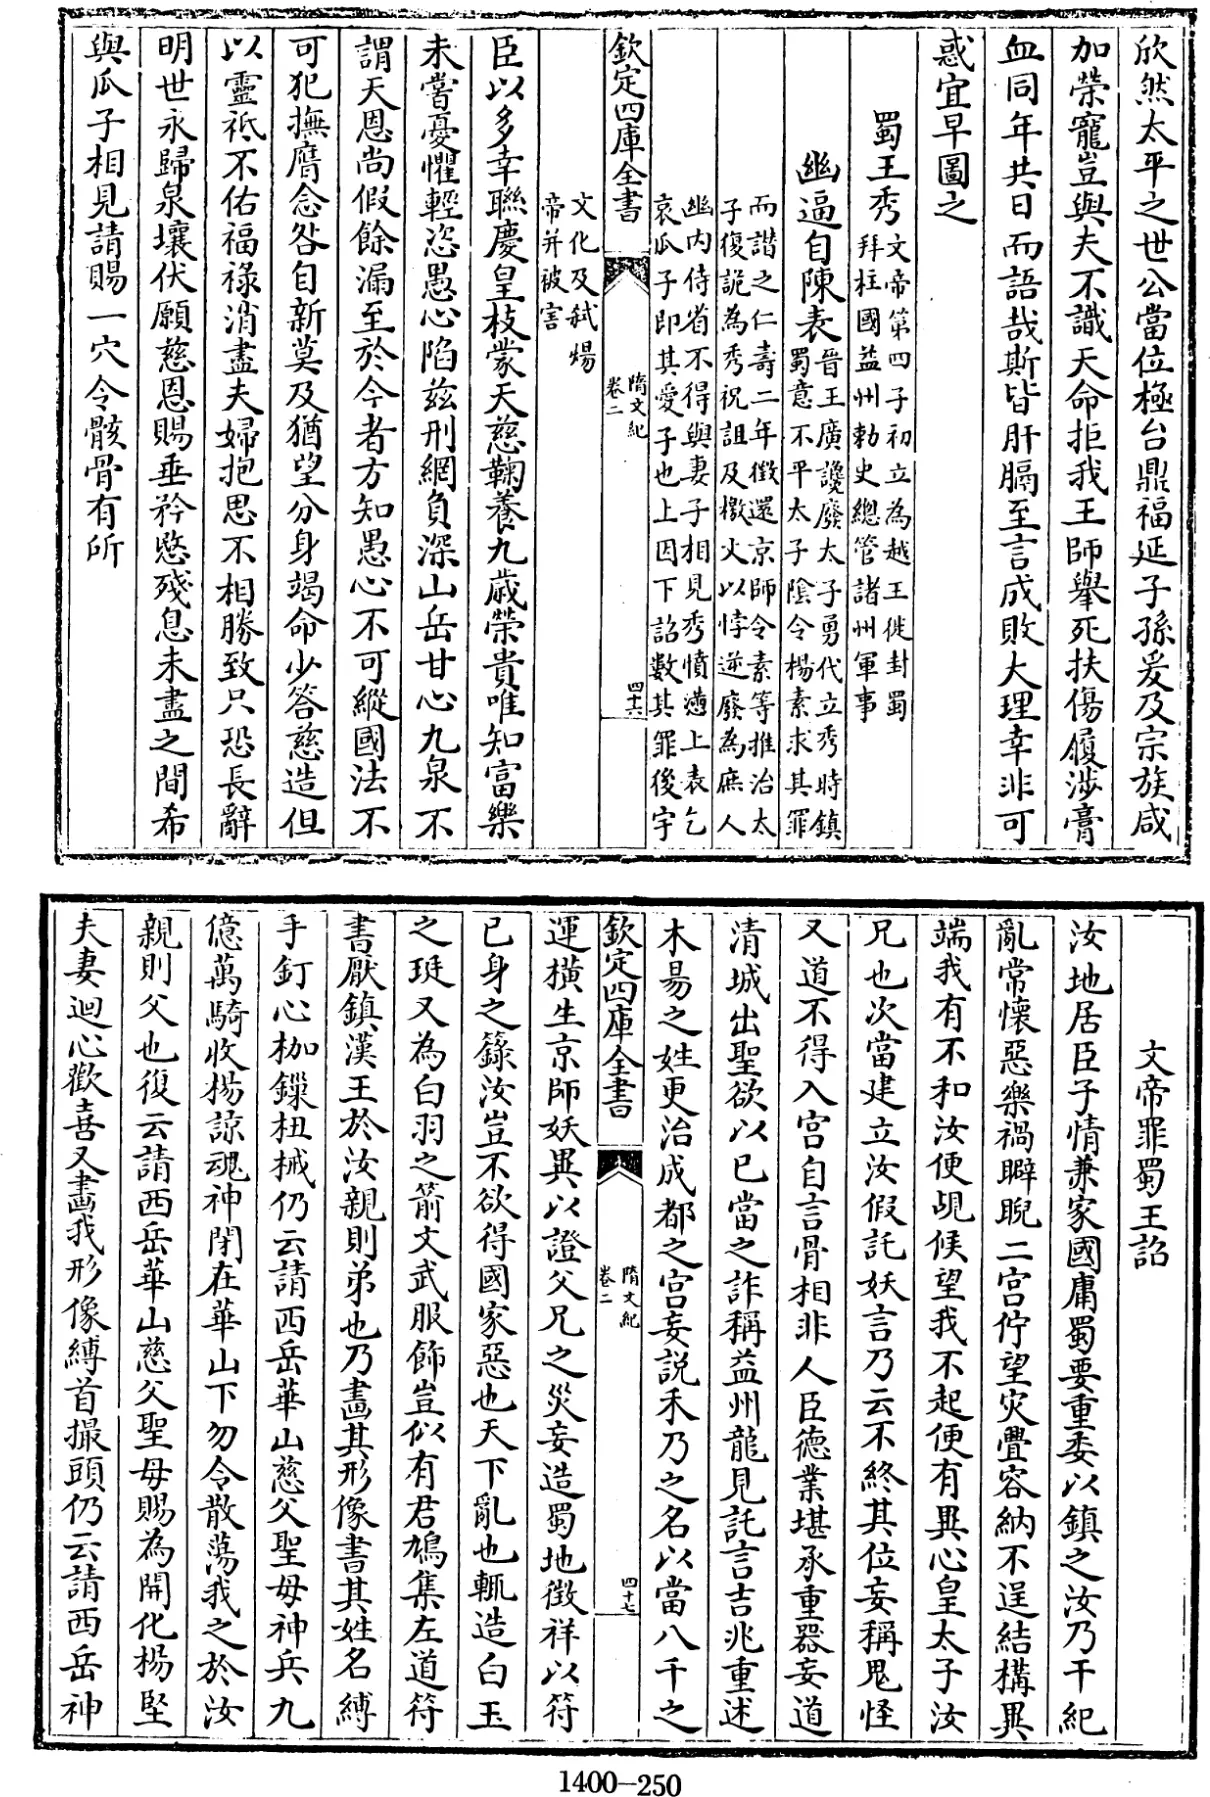 欣然太平之世公當位極台鼎福延子孫爰及宗族咸
加榮寵豈與夫不識天命拒我王師轝死扶傷履涉膏
血同年共日而語哉斯皆肝膈至言成敗大理幸非可
惑宜早圖之
蜀王秀文帝第四子初立為越王徙封蜀
拜柱國益州勅史總管諸州軍事
幽逼自陳表晉王廣讒廢太子勇代立秀時鎮
蜀意不平太子陰令楊素求其罪
而譖之仁壽二年徵還京師令素等推治太
子復詭為秀祝詛及檄火以悖逆廢為庶人
幽内侍省不得與妻子相見秀憤懣上表乞
哀瓜子即其愛子也上因下詔數其罪後字
欽定四庫全書
隋文紀
卷二
四十六
文化及弑煬
帝并被害
臣以多幸聯慶皇枝蒙天慈鞠養九歳榮貴唯知富樂
未嘗憂懼輕恣愚心陷茲刑網負深山岳甘心九泉不
謂天恩尚假餘漏至於今者方知愚心不可縱國法不
可犯撫膺念咎自新莫及猶望分身竭命少答慈造但
以靈祗不佑福祿消盡夫婦抱思不相勝致只恐長辭
明世永歸泉壤伏願慈恩賜垂矜愍殘息未盡之間希
與瓜子相見請賜一穴令骸骨有所
文帝罪蜀王詔
汝地居臣子情兼家國庸蜀要重委以鎮之汝乃干紀
亂常懷惡樂禍睥睨二宫佇望灾舋容納不逞結構異
端我有不和汝便覘候望我不起便有異心皇太子汝
兄也次當建立汝假託妖言乃云不終其位妄稱鬼怪
又道不得入宫自言骨相非人臣德業堪承重器妄道
清城出聖欲以已當之詐稱益州龍見託言吉兆重述
木易之姓更治成都之宫妄説禾乃之名以當八千之
欽定四庫全書
隋文紀
卷二
四十七
運橫生京師妖異以證父兄之災妄造蜀地徴祥以符
已身之籙汝豈不欲得國家惡也天下亂也輒造白玉
之珽又為白羽之箭文武服飾豈似有君鳩集左道符
書厭鎮漢王於汝親則弟也乃畫其形像書其姓名縛
手釘心枷鏁杻械仍云請西岳華山慈父聖母神兵九
億萬騎收楊諒魂神閉在華山下勿令散蕩我之於汝
親則父也復云請西岳華山慈父聖母賜為開化楊堅
夫妻迴心歡喜又畫我形像縛首撮頭仍云請西岳神
1400—250